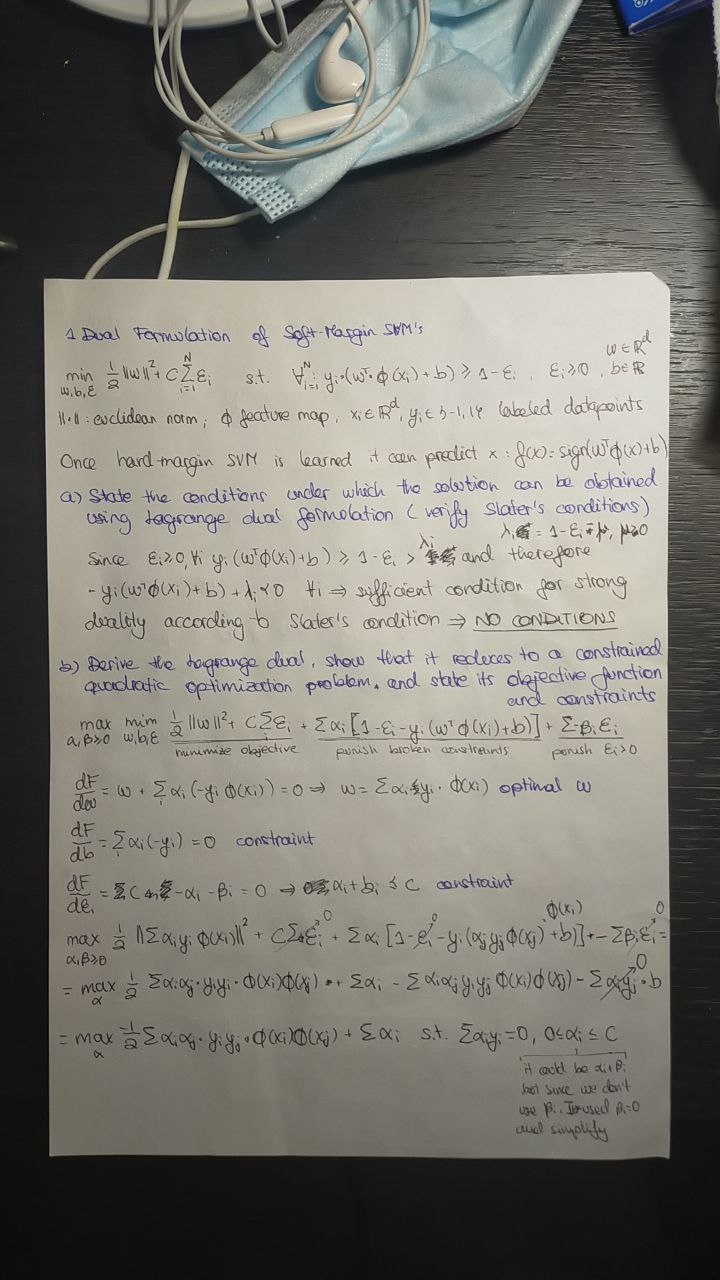 1 Dual Formulation of Soft-Margin SVM's
min w,b,ε 1/2 ||w||² + C Σ_{i=1}^{N} ε_i s.t. ∀_{i=1}^{N}: y_i·(wᵀ·ϕ(x_i)+b) ≥ 1-ε_i , ε_i ≥ 0 , w ∈ ℝᵈ b ∈ ℝ
||·|| : euclidean norm, ϕ feature map, x_i ∈ ℝᵈ, y_i ∈ {-1,1} labeled datapoints
Once hard-margin SVM is learned it can predict x : f(x) = sign(wᵀϕ(x)+b)
a) State the conditions under which the solution can be obtained
using Lagrange dual formulation (verify Slater's conditions)
λ_i = 1-ε_i
Since ε_i ≥ 0, ∀i y_i (wᵀϕ(x_i)+b) ≥ 1-ε_i > λ_i and therefore
-y_i(wᵀϕ(x_i)+b) + λ_i < 0 ∀i ⇒ sufficient condition for strong
duality according to Slater's condition ⇒ NO CONDITIONS
b) Derive the Lagrange dual, show that it reduces to a constrained
quadratic optimization problem, and state its objective function
and constraints
max α,β≥0 min w,b,ε 1/2 ||w||² + C Σ ε_i + Σ α_i [1-ε_i-y_i(wᵀϕ(x_i)+b)] + Σ-β_i ε_i
minimize objective punish broken constraints punish ε_i>0
dF/dw = w + Σ_i α_i (-y_i ϕ(x_i)) = 0 ⇒ w = Σ α_i y_i · ϕ(x_i) optimal w
dF/db = Σ_i α_i (-y_i) = 0 constraint
dF/dε_i = C - α_i - β_i = 0 → α_i + b_i ≤ C constraint
ϕ(x_i)
max α,β≥0 1/2 ||Σ α_i y_i ϕ(x_i)||² + C Σ ε_i → 0 + Σ α_i [1-ε_i → 0 - y_i (α_j y_j ϕ(x_j) + b)] - Σ β_i ε_i → 0 =
= max α 1/2 Σ α_i α_j · y_i y_j · ϕ(x_i)ϕ(x_j) + Σ α_i - Σ α_i α_j y_i y_j ϕ(x_i)ϕ(x_j) - Σ α_i y_i → 0 · b
= max α -1/2 Σ α_i α_j · y_i y_j · ϕ(x_i)ϕ(x_j) + Σ α_i s.t. Σ α_i y_i = 0, 0 ≤ α_i ≤ C
it could be α_i+β_i
but since we don't
use β_i, I used β_i=0
and simplify